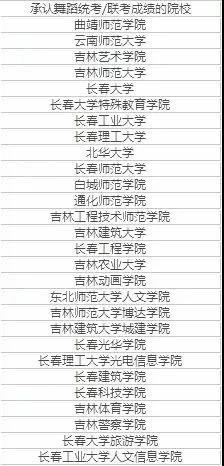 承认舞蹈统考/联考成绩的院校
曲靖师范学院
云南师范大学
吉林艺术学院
吉林师范大学
长春大学
长春大学特殊教育学院
长春工业大学
长春理工大学
北华大学
长春师范大学
白城师范学院
通化师范学院
吉林工程技术师范学院
吉林建筑大学
长春工程学院
吉林农业大学
吉林动画学院
东北师范大学人文学院
吉林师范大学博达学院
吉林建筑大学城建学院
长春光华学院
长春理工大学光电信息学院
长春建筑学院
长春科技学院
吉林体育学院
吉林警察学院
长春大学旅游学院
长春工业大学人文信息学院